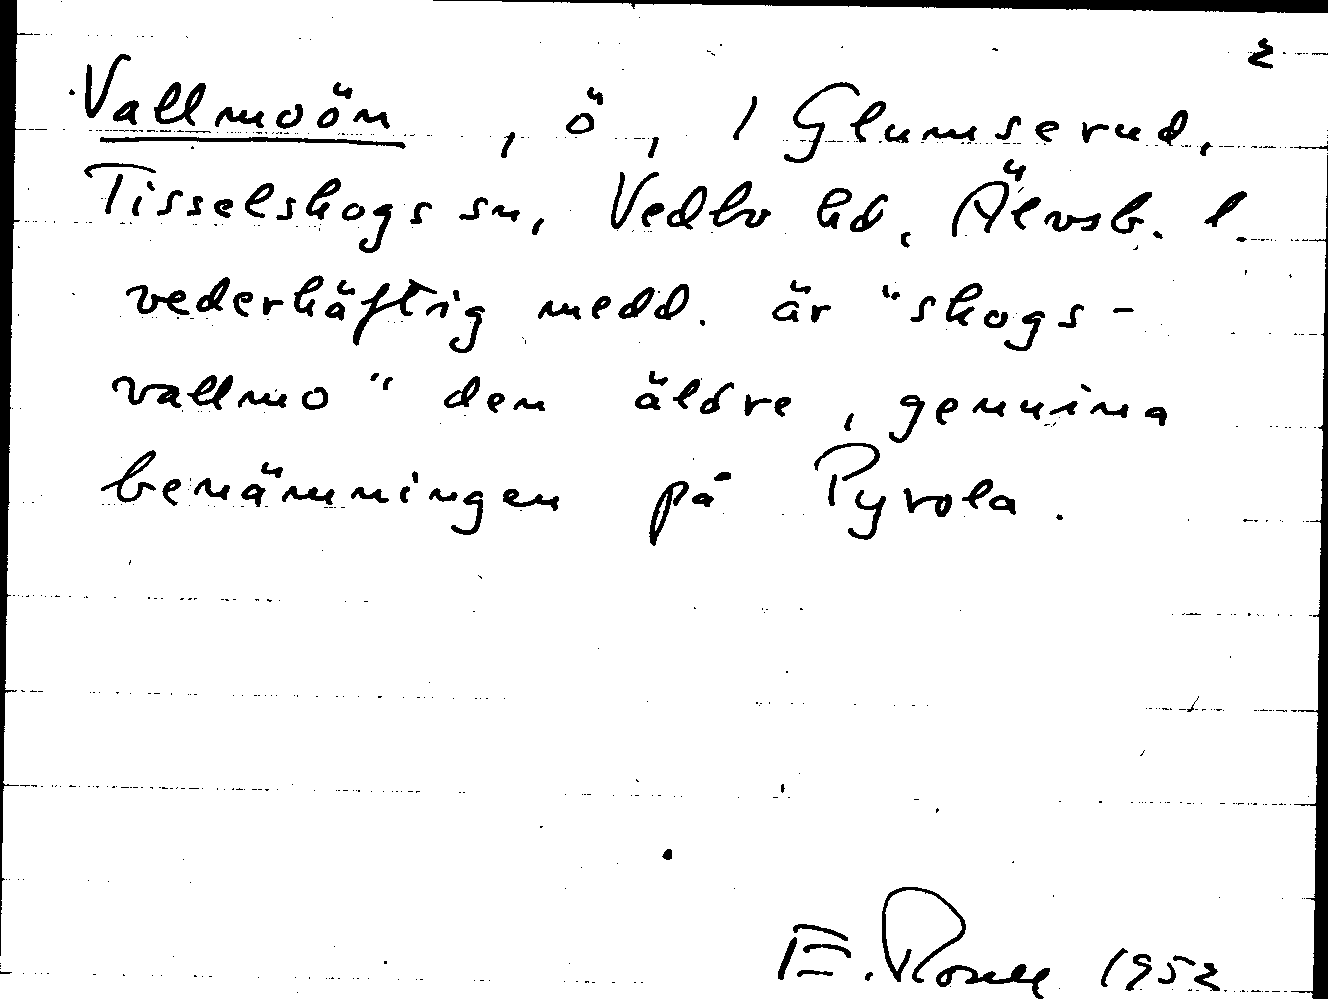 2
Vallmoön, ö, / Glumserud,
Tisselskogs sn, Vedbo hd, Älvsb. l.
vederhäftig medd. är "skogs-
vallmo" den äldre, genuina
benämningen på Pyrola.
E. 1952